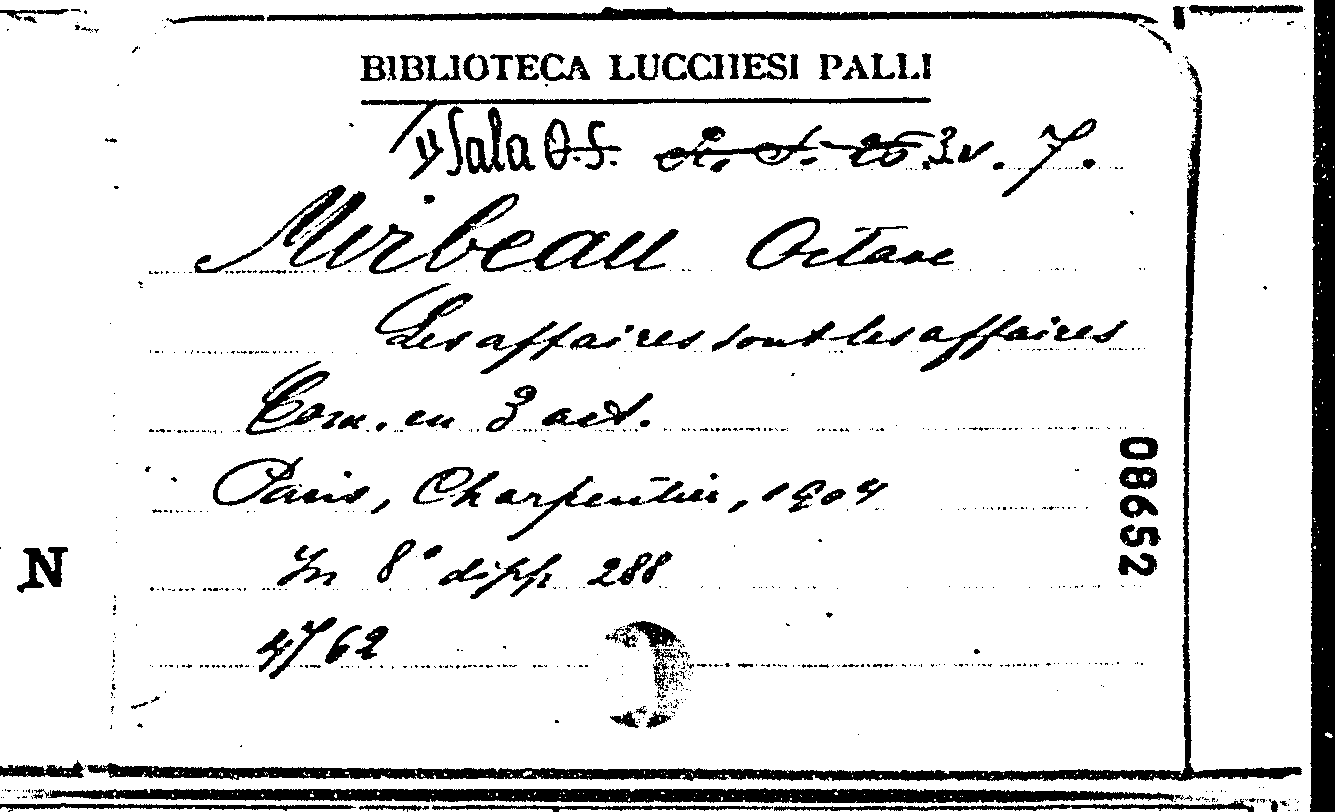 BIBLIOTECA LUCCHESI PALLI
Sala O.S. 3 v. 7.
Mirbeau Octave
Les affaires sont les affaires
Com. en 3 act.
Paris, Charpentier, 1904
In 8° di pp 288
4762
08652
N